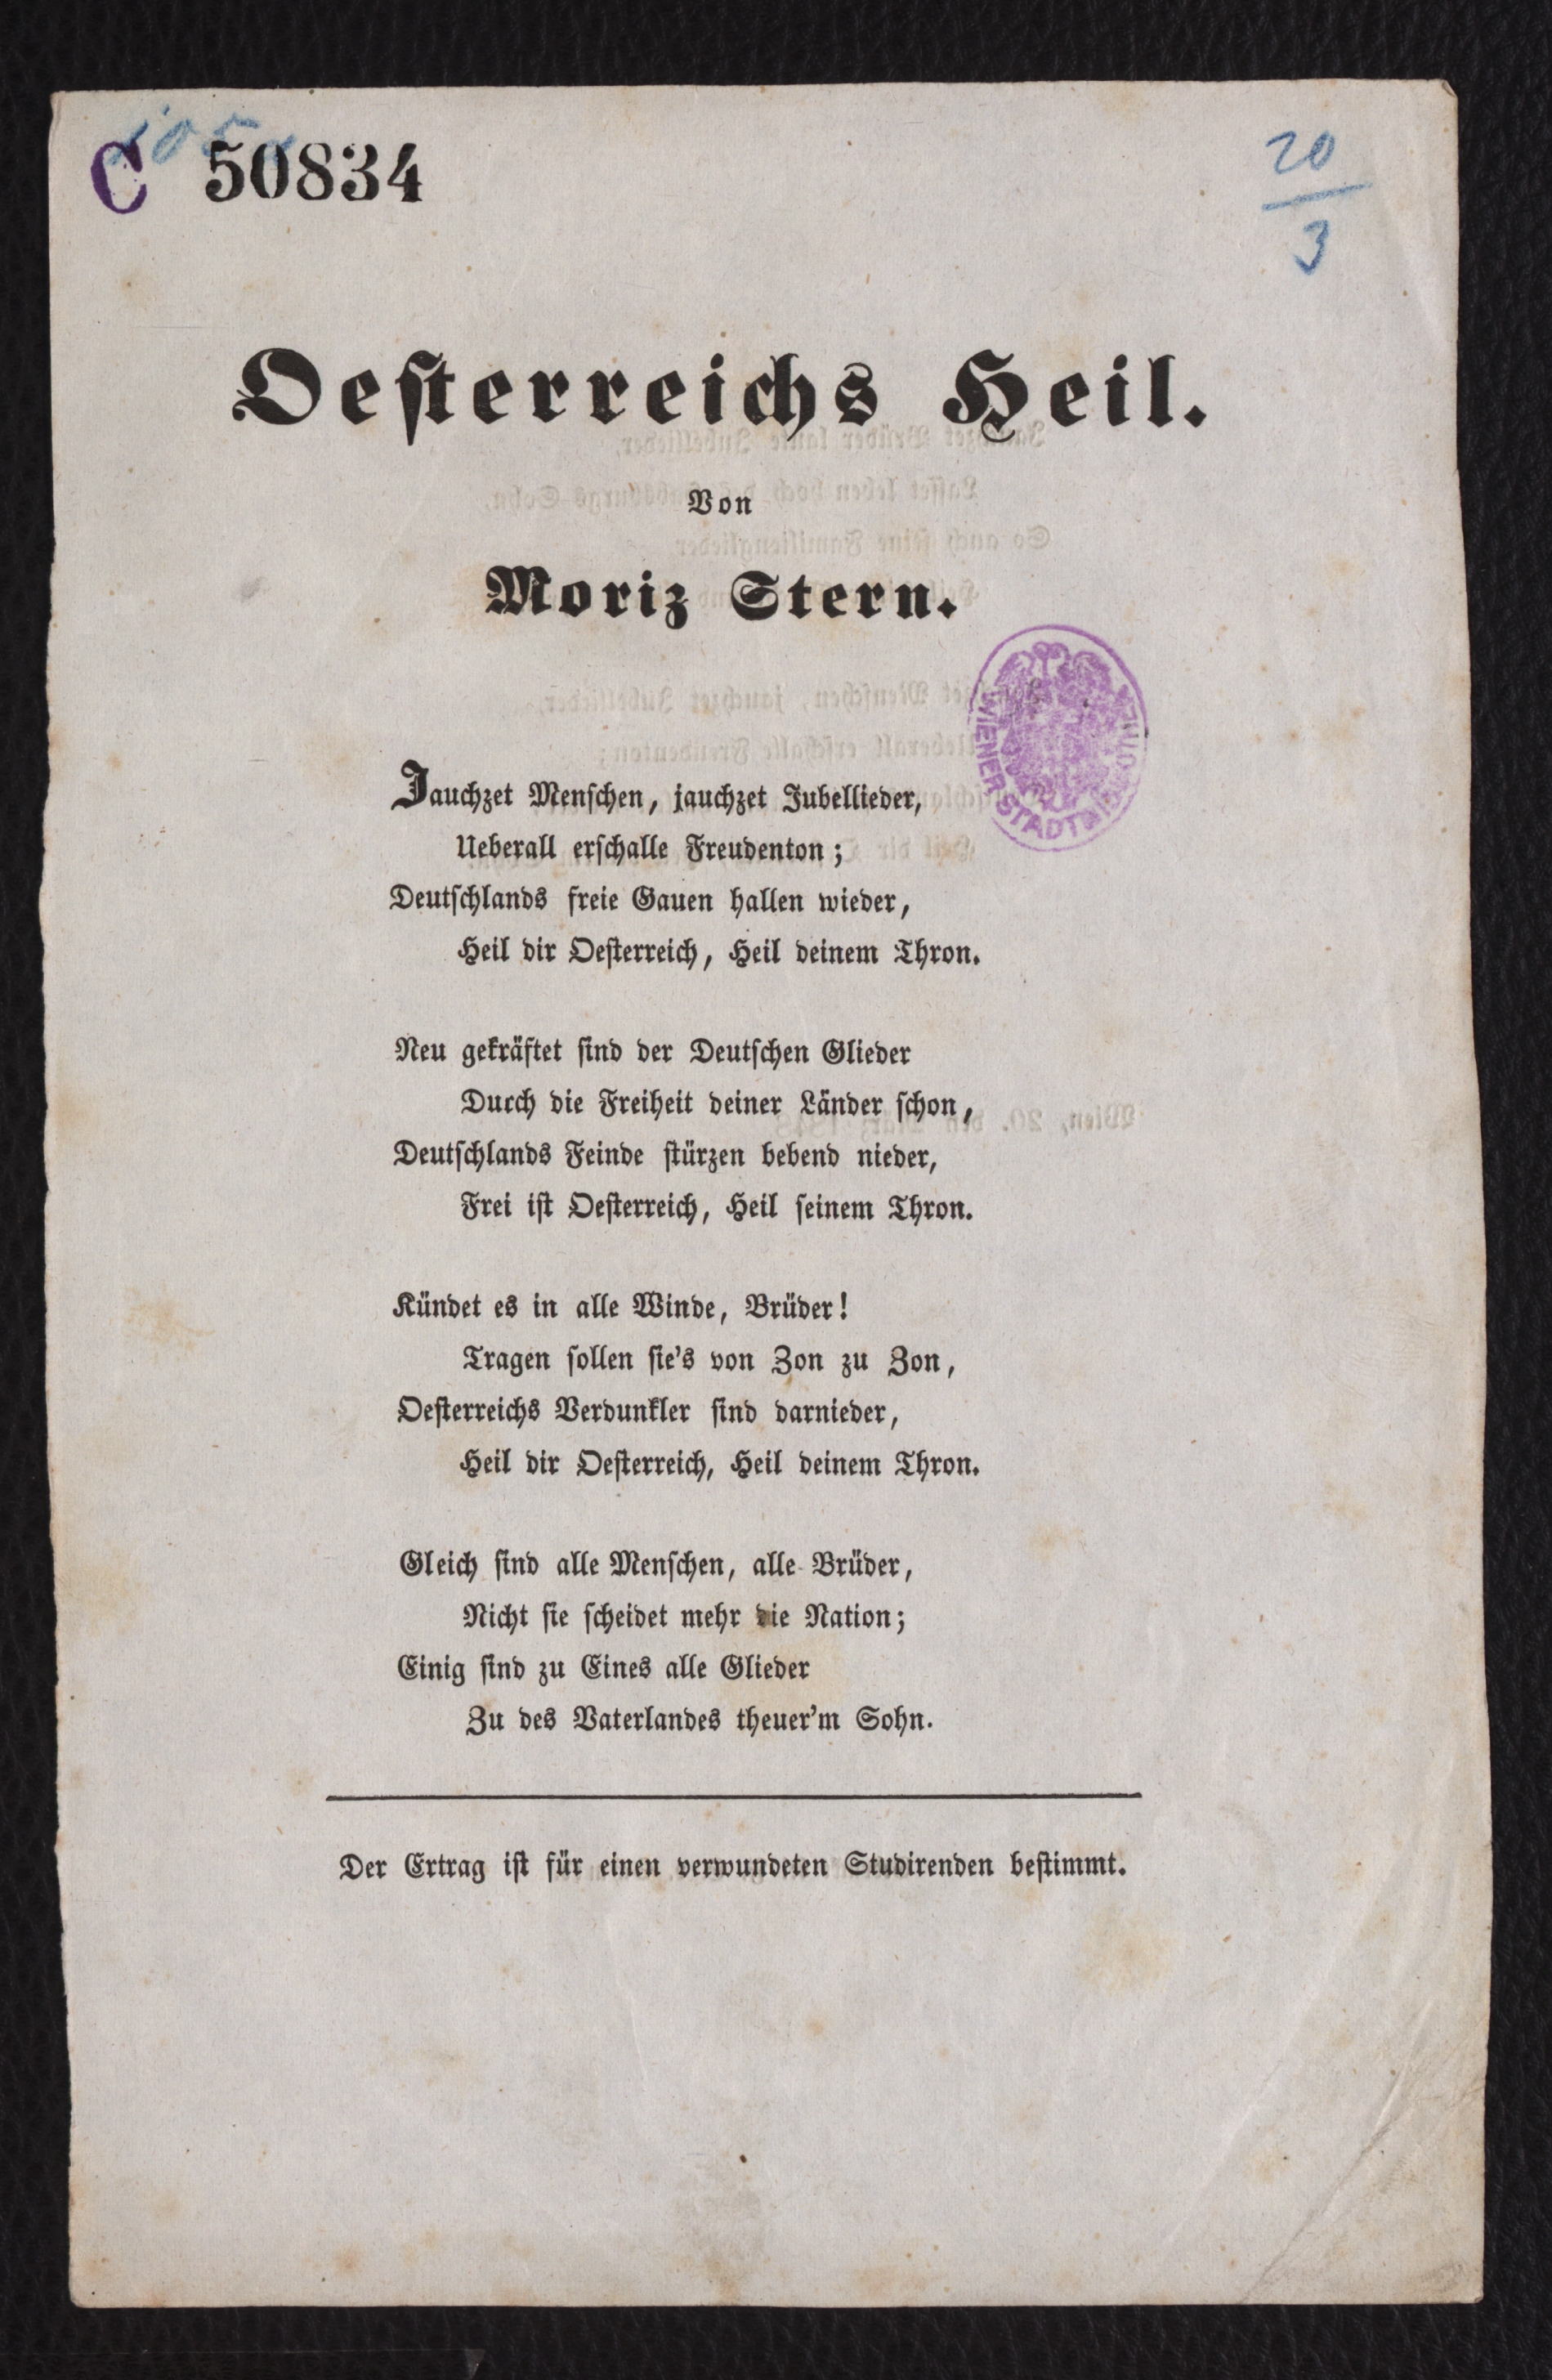 C 50834
20
3
Oesterreichs Heil.
Von
Moriz Stern.
WIENER STADTBIBLIOTHEK
Jauchzet Menschen, jauchzet Jubellieder,
Ueberall erschalle Freudenton;
Deutschlands freie Gauen hallen wieder,
Heil dir Oesterreich, Heil deinem Thron.
Neu gekräftet sind der Deutschen Glieder
Durch die Freiheit deiner Länder schon,
Deutschlands Feinde stürzen bebend nieder,
Frei ist Oesterreich, Heil seinem Thron.
Kündet es in alle Winde, Brüder!
Tragen sollen sie's von Zon zu Zon,
Oesterreichs Verdunkler sind darnieder,
Heil dir Oesterreich, Heil deinem Thron.
Gleich sind alle Menschen, alle Brüder,
Nicht sie scheidet mehr die Nation;
Einig sind zu Eines alle Glieder
Zu des Vaterlandes theuer'm Sohn.
Der Ertrag ist für einen verwundeten Studirenden bestimmt.